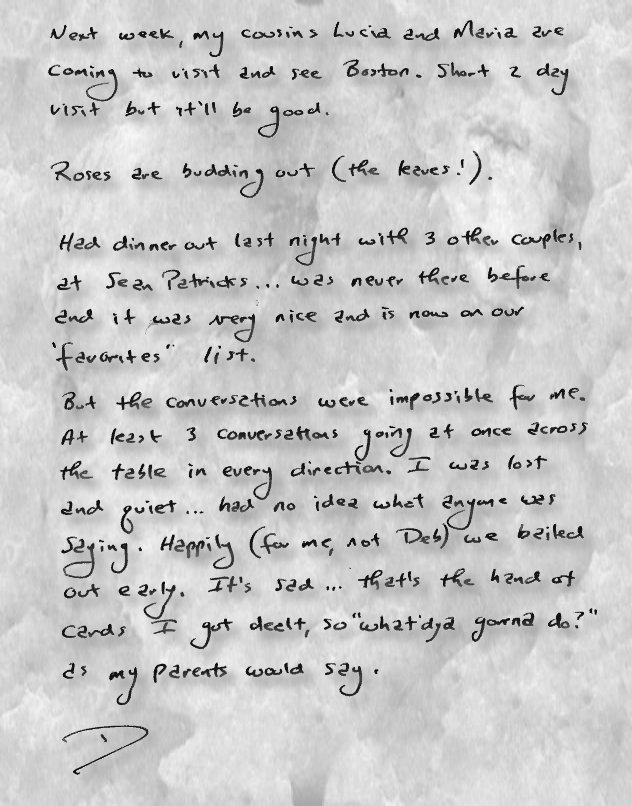 Next week, my cousins Lucia and Maria are
coming to visit and see Boston. Short 2 day
visit but it'll be good.
Roses are budding out (the leaves!).
Had dinner out last night with 3 other couples,
at Sean Patricks... was never there before
and it was very nice and is now on our
"favorites" list.
But the conversations were impossible for me.
At least 3 conversations going at once across
the table in every direction. I was lost
and quiet... had no idea what anyone was
saying. Happily (for me, not Deb) we bailed
out early. It's sad... that's the hand of
cards I got dealt, so "what'dya gonna do?"
as my parents would say.
D